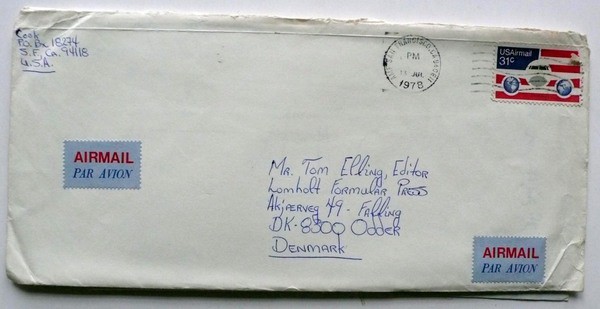 Cook
P.O. Box 18274
S.F. Ca. 94118
U.S.A.
SAN FRANCISCO, CA
PM
JUL
1978
USAirmail
31c
AIRMAIL
PAR AVION
Mr. Tom Elling, Editor
Lomholt Formular Press
Akjærveg 49 - Falling
DK-8300 Odder
DENMARK
AIRMAIL
PAR AVION